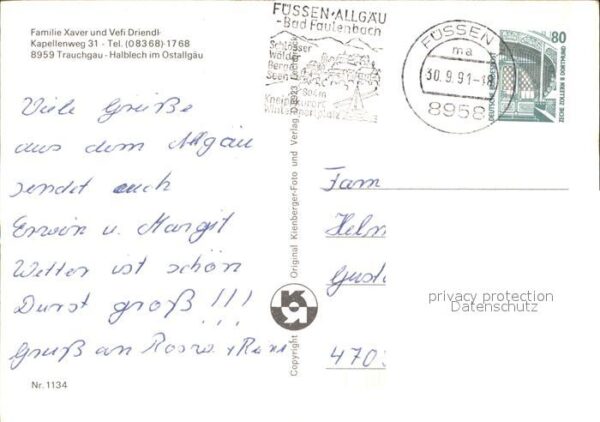 Familie Xaver und Vefi Driendl
Kapellenweg 31 - Tel. (08368) 1768
8959 Trauchgau - Halblech im Ostallgäu
FÜSSEN · ALLGÄU
- Bad Faulenbach
Schlösser
Wälder
Berge
Seen
FÜSSEN
ma
30.9.91-18
8958
80
DEUTSCHE BUNDESPOST
ZECHE ZOLLERN II DORTMUND
Viele Grüße
aus dem Allgäu
sendet auch
Erwin u. Margit
Wetter ist schön
Durst groß!!!
Gruß an
Nr. 1134
Copyright
Original Kienberger-Foto und Verlag
Fam
Helm
Gust
470
privacy protection
Datenschutz